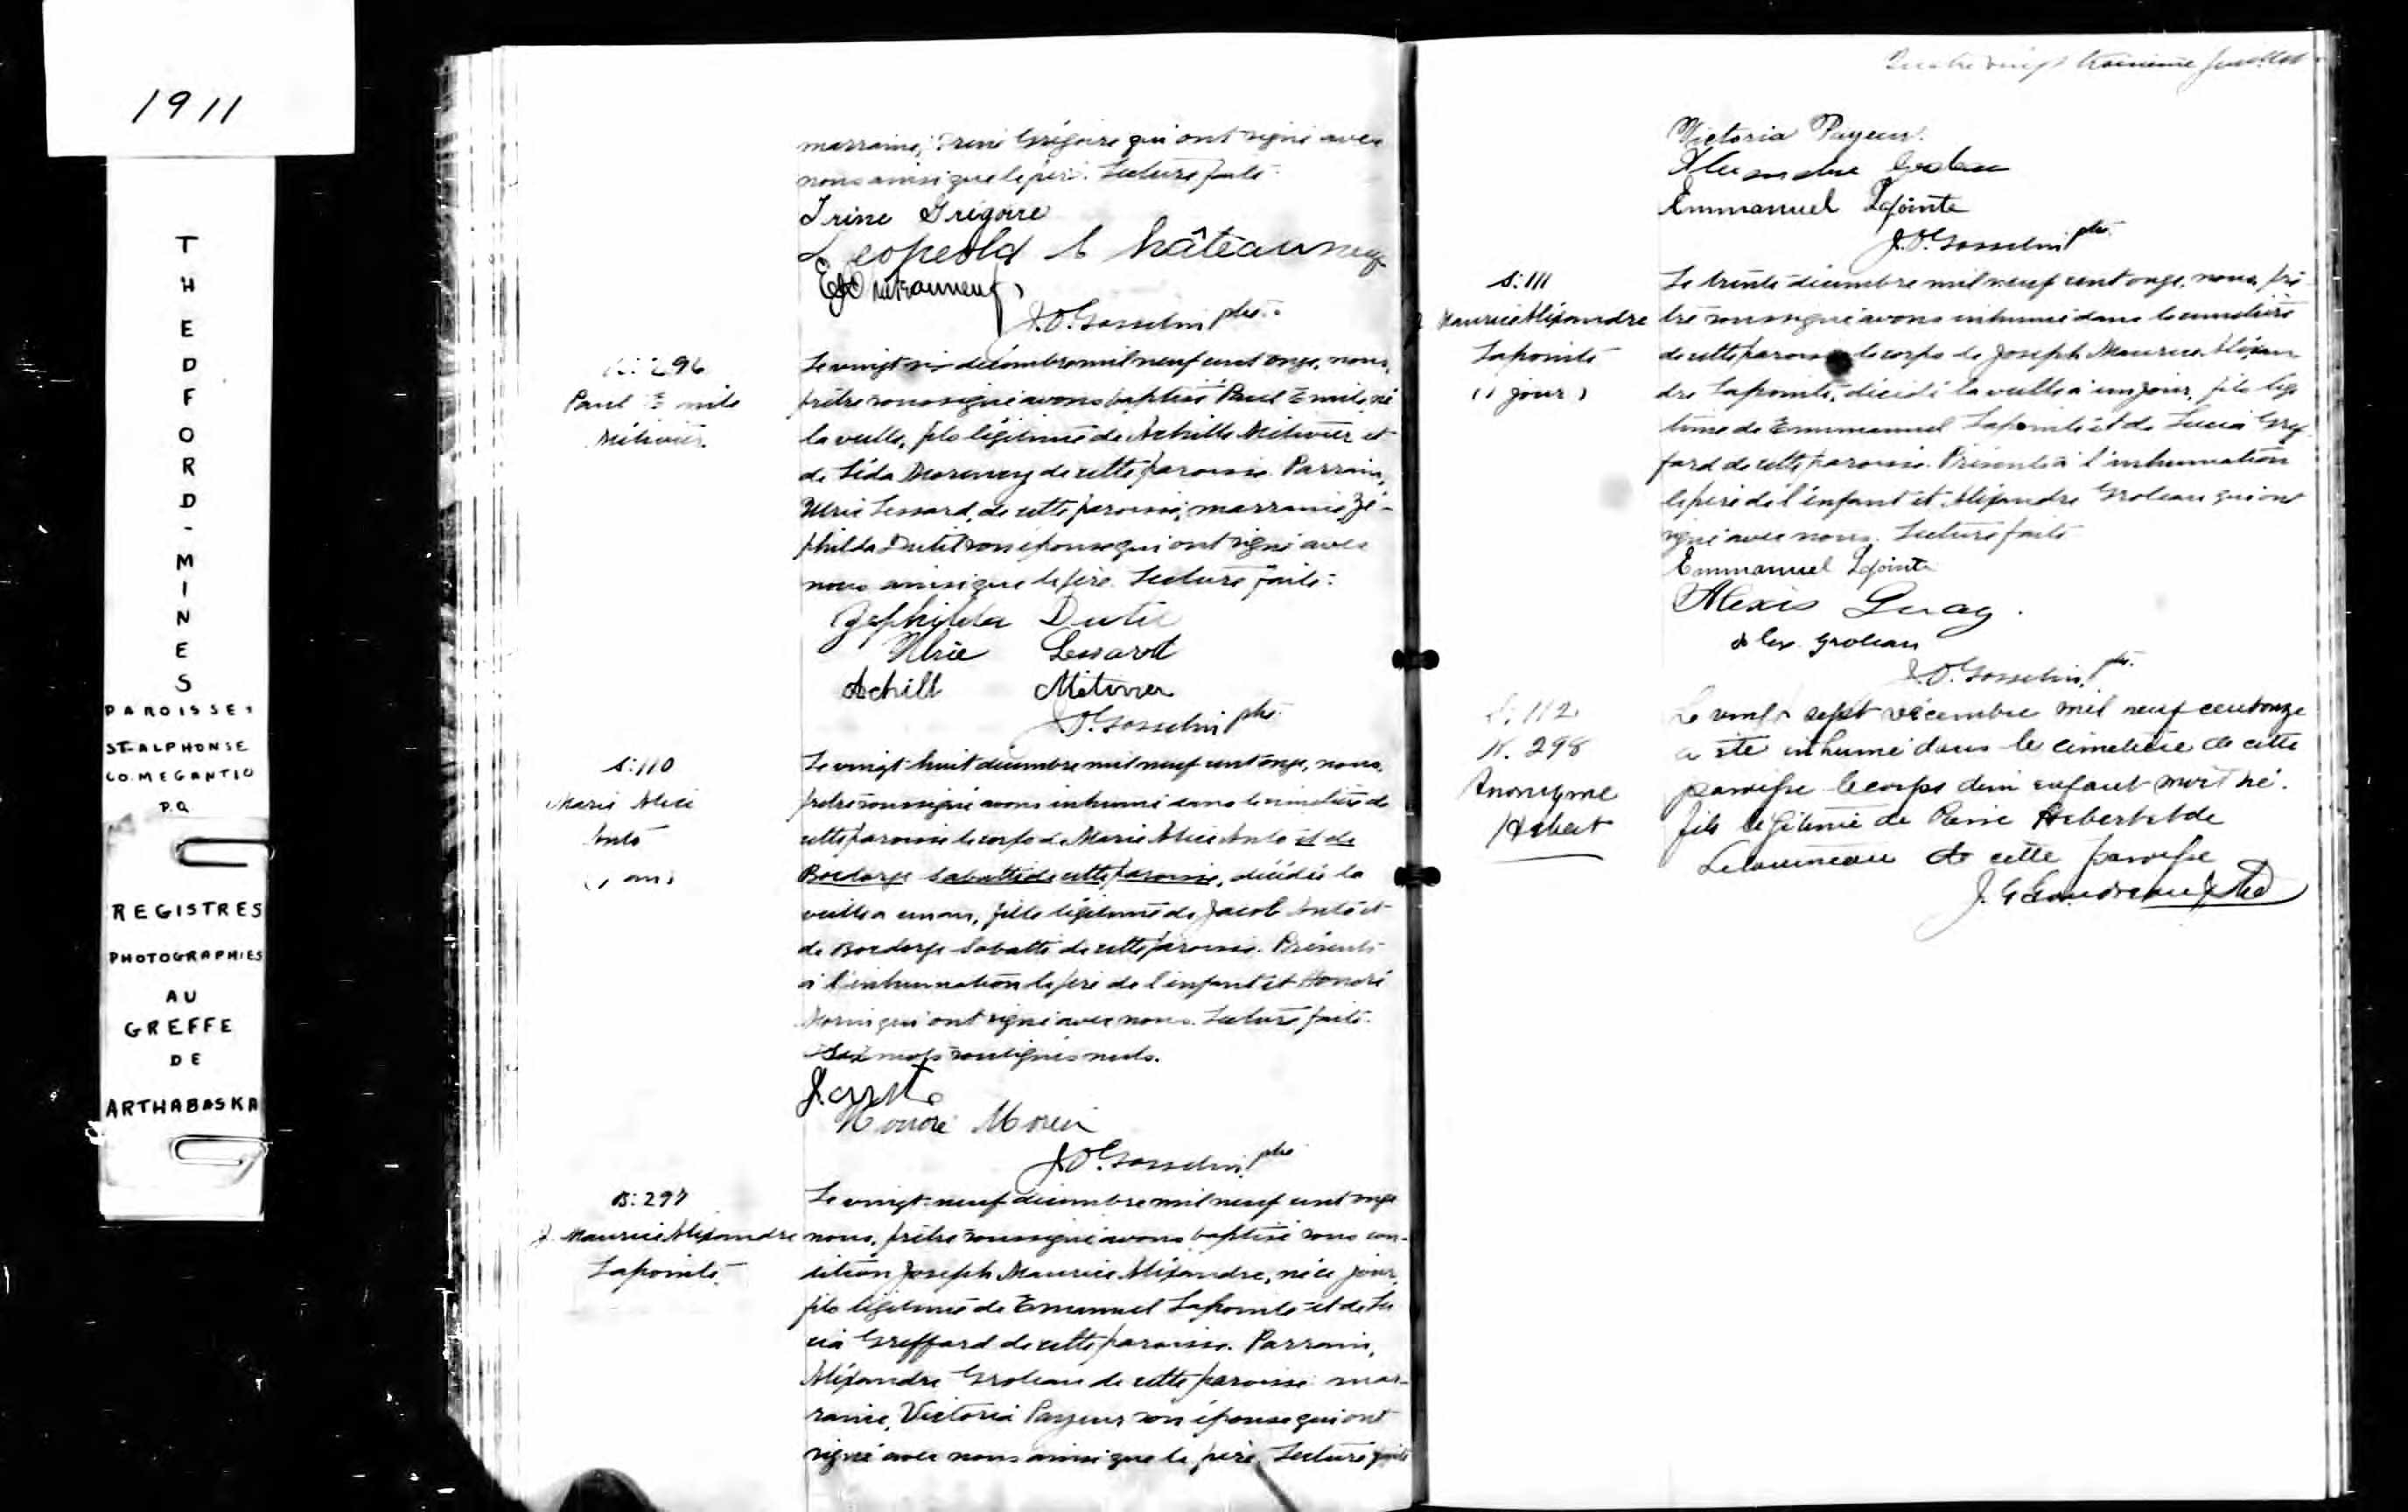 1911
THEDFORD-MINES
PAROISSE:
ST-ALPHONSE
CO. MEGANTIC
P.Q.
REGISTRES
PHOTOGRAPHIES
AU
GREFFE
DE
ARTHABASKA
marraine, Irène Grégoire qui ont signé avec
nous ainsi que le père. Lecture faite.
Irène Grégoire
Leopold Châteauneuf
J.O. Gosselin ptre.
B: 296
Paul Emile
Métivier
Le vingt-six décembre mil neuf cent onze, nous,
prêtre soussigné avons baptisé Paul Emile, né
la veille, fils légitime de Achille Métivier et
de Léda Morency de cette paroisse. Parrain,
Ulric Lessard, de cette paroisse; marraine, Zé-
philda Dutil son épouse qui ont signé avec
nous ainsi que le père. Lecture faite.
Zephilda Dutil
Ulric Lessard
Achill Métivier
J.O. Gosselin ptre.
S: 110
Marie Alice
(1 an)
Le vingt-huit décembre mil neuf cent onze, nous,
prêtre soussigné avons inhumé dans le cimetière de
cette paroisse le corps de Marie Alice et de
de cette paroisse, décédée la
veille à un an, fille légitime de Jacob et
de de cette paroisse. Présents
à l'inhumation le père de l'enfant et Honoré
Morin qui ont signé avec nous. Lecture faite.
Six mots soulignés nuls.
Honoré Morin
J.O. Gosselin ptre
B: 297
J. Maurice Alixandre
Lapointe.
Le vingt-neuf décembre mil neuf cent onze
nous, prêtre soussigné avons baptisé sous con-
dition Joseph Maurice Alixandre, né ce jour,
fils légitime de Emanuel Lapointe et de Lu-
cia Greffard de cette paroisse. Parrain,
Alixandre Groleau de cette paroisse mar-
raine, Victoria Payeur son épouse qui ont
signé avec nous ainsi que le père. Lecture faite
Quatre vingt treizième feuillet
Victoria Payeur.
Emmanuel Lapointe
J.O. Gosselin ptre.
S: 111
J. Maurice Alixandre
Lapointe
(1 jour)
Le trente décembre mil neuf cent onze, nous, prê-
tre soussigné avons inhumé dans le cimetière
de cette paroisse le corps de Joseph Maurice Alixan-
dre Lapointe, décédé la veille à un jour, fils légi-
time de Emmanuel Lapointe et de Lucia Gref-
fard de cette paroisse. Présents à l'inhumation
le père de l'enfant et Alixandre Groleau qui ont
signé avec nous. Lecture faite
Emmanuel Lapointe
Alexis Guay.
Alex Groleau
J.O. Gosselin, ptr.
S: 112
N. 298
Anonyme
Hebert
Le vingt sept décembre mil neuf cent onze
a été inhumé dans le cimetière de cette
paroisse le corps d'un enfant mort né.
fils légitime de Hebert et de
de cette paroisse